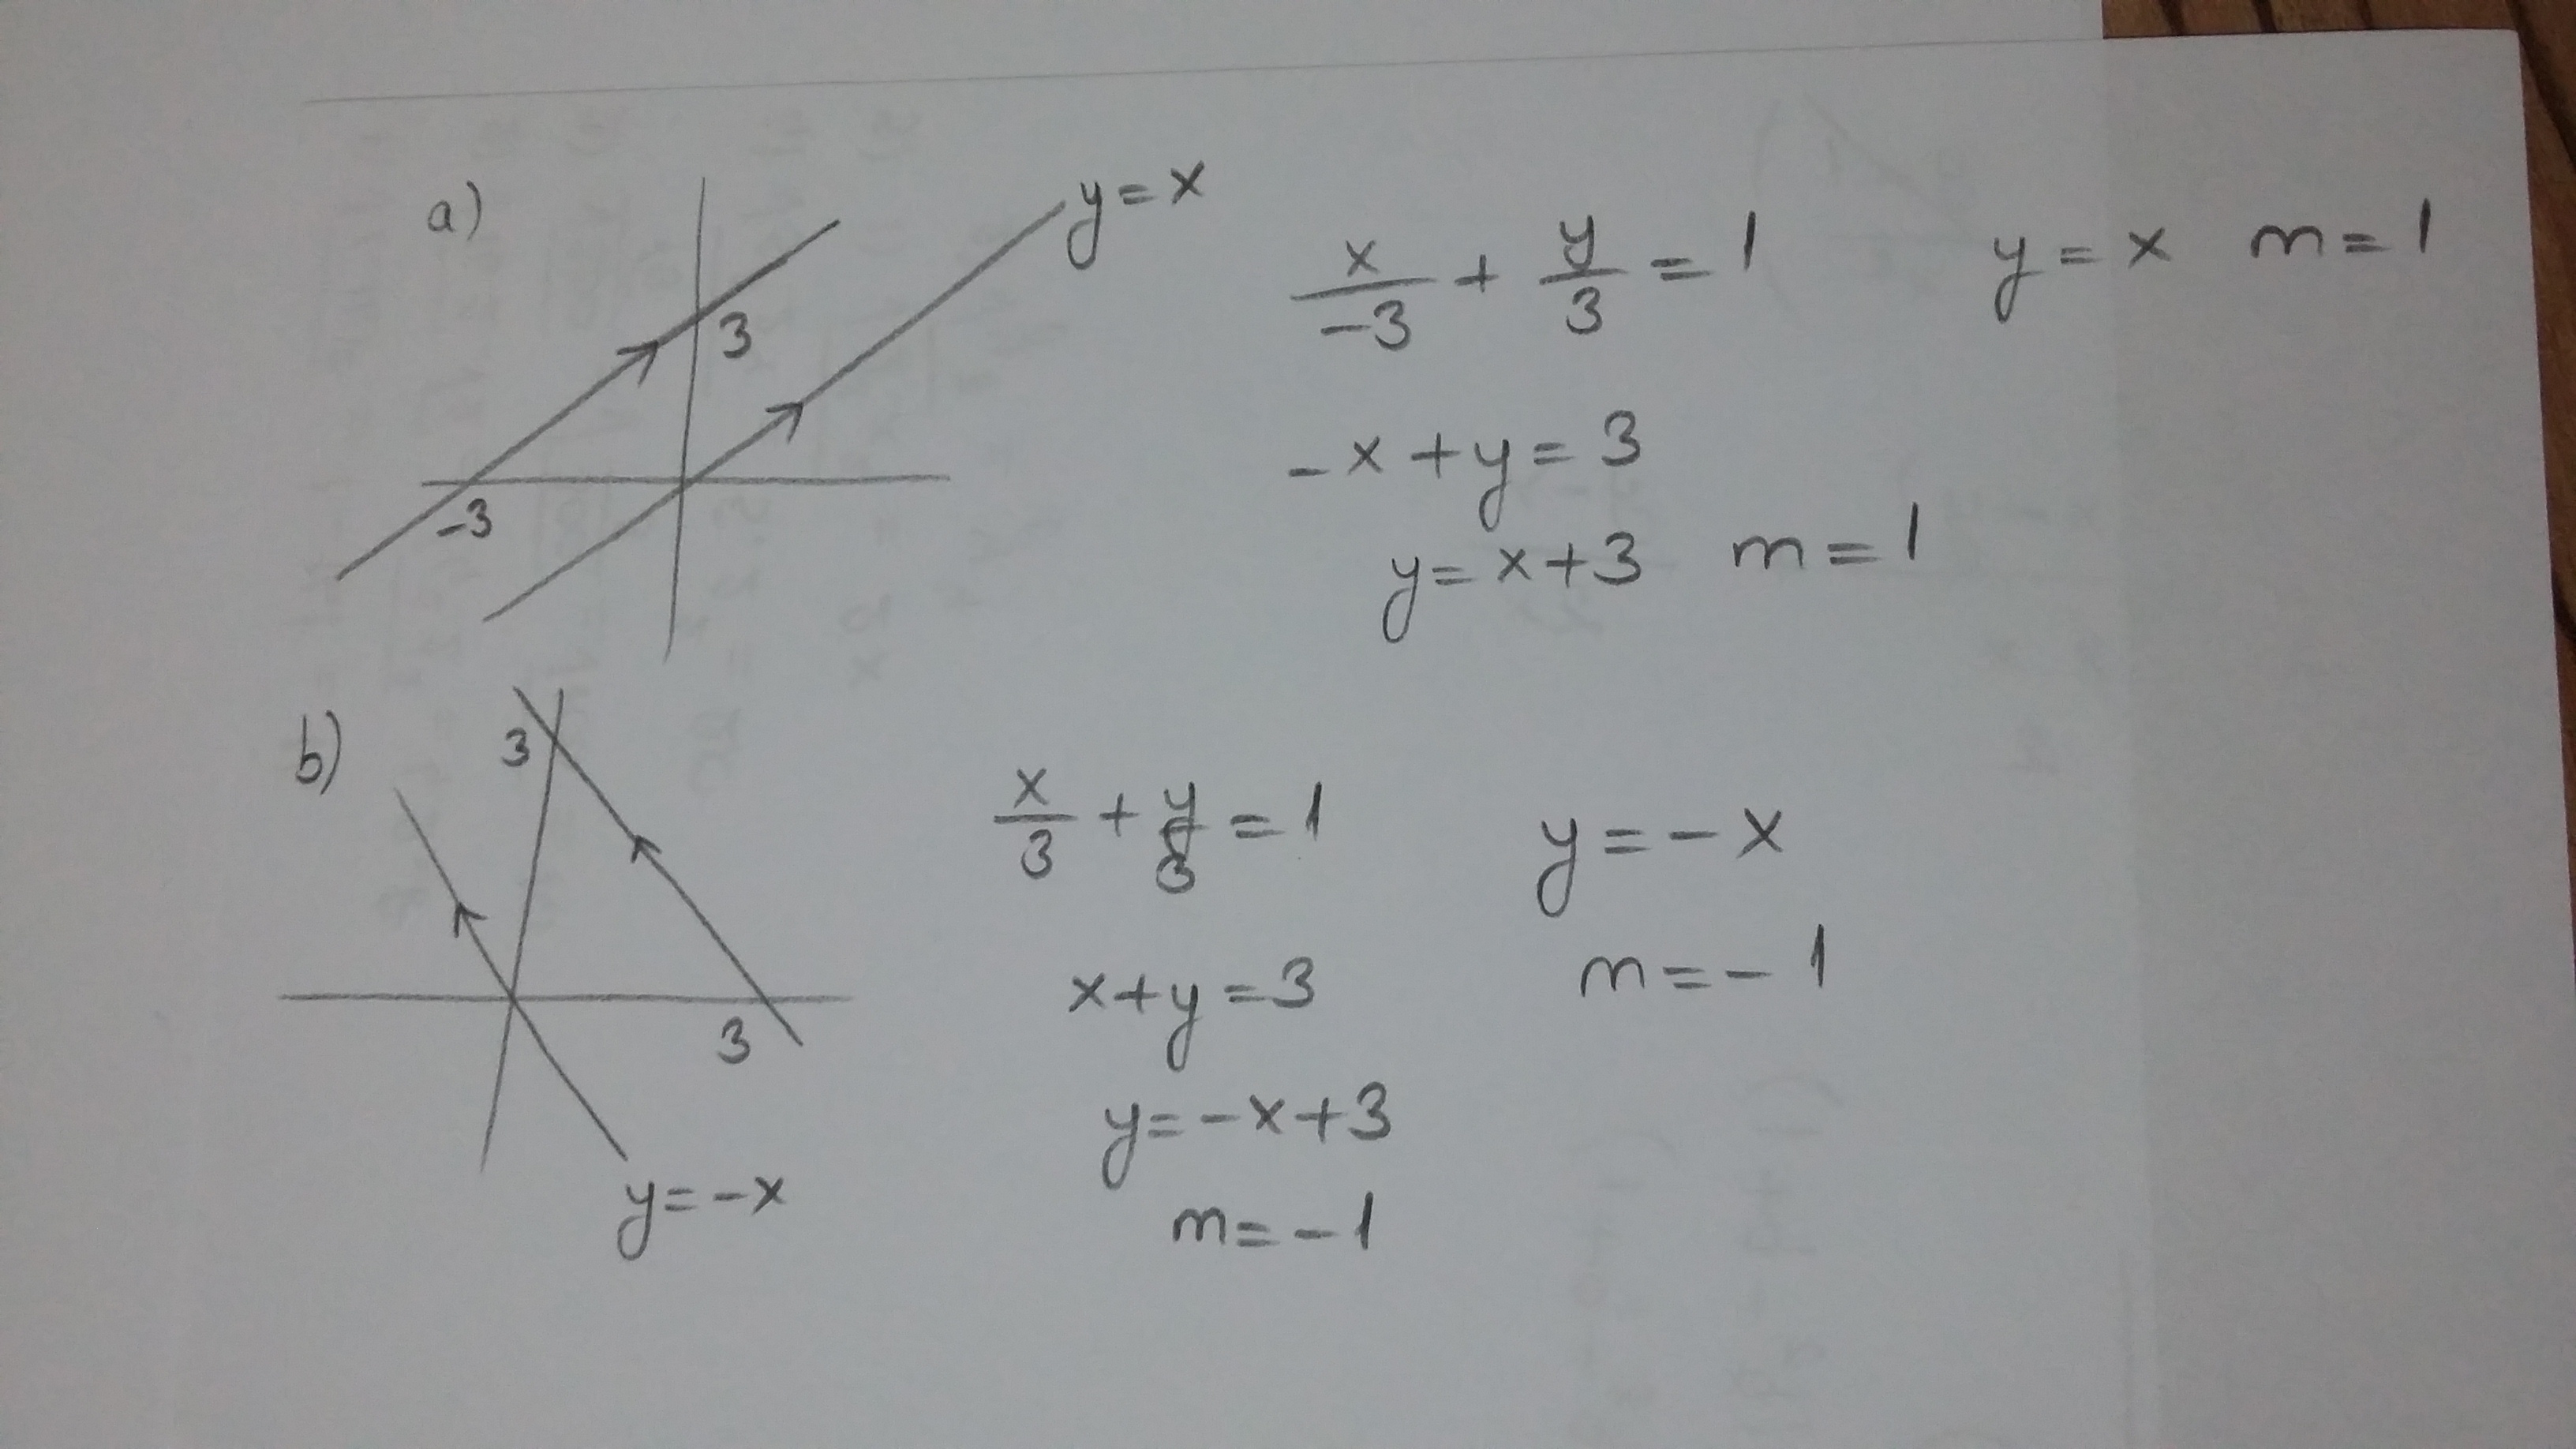 a)
y = x
3
-3
x/-3 + y/3 = 1
y = x m = 1
-x + y = 3
y = x + 3 m = 1
b)
3
3
y = -x
x/3 + y/3 = 1
y = -x
x + y = 3
m = -1
y = -x + 3
m = -1